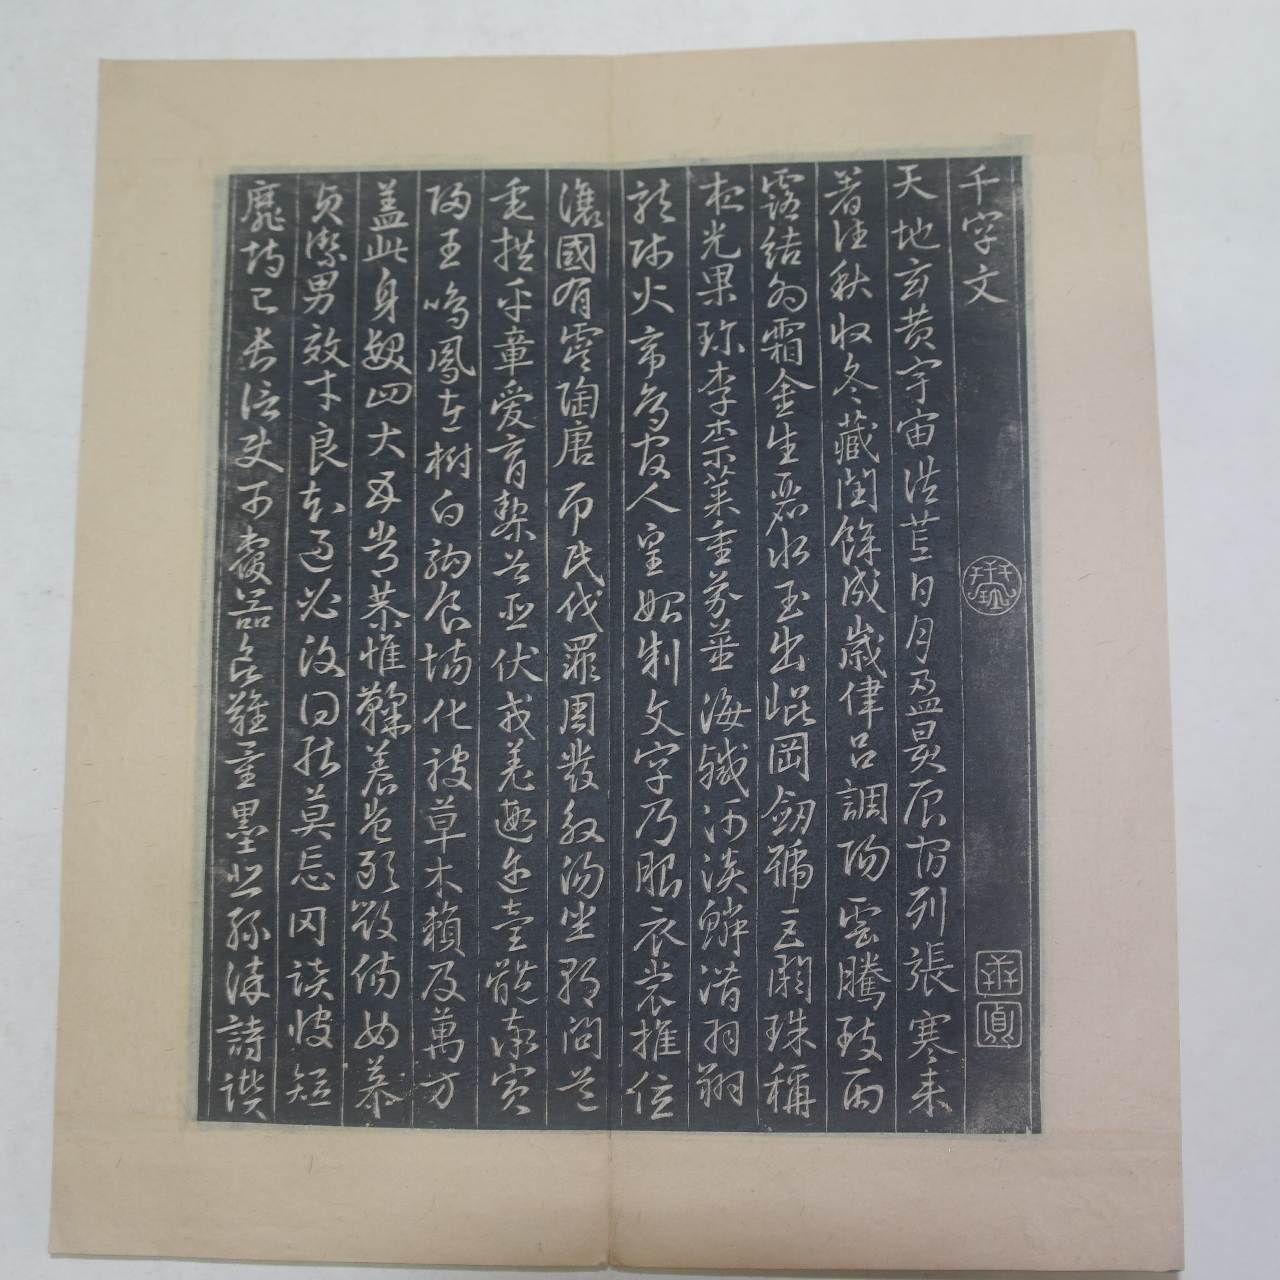 千字文
天地玄黃宇宙洪荒日月盈昃辰宿列張寒來
暑往秋收冬藏閏餘成歲律呂調陽雲騰致雨
露結為霜金生麗水玉出崐岡劒號巨闕珠稱
夜光果珍李柰菜重芥薑海鹹河淡鱗潛羽翔
龍師火帝鳥官人皇始制文字乃服衣裳推位
讓國有虞陶唐弔民伐罪周發殷湯坐朝問道
垂拱平章愛育黎首臣伏戎羌遐邇壹體率賓
歸王鳴鳳在樹白駒食場化被草木賴及萬方
蓋此身髮四大五常恭惟鞠養豈敢毀傷女慕
貞潔男效才良知過必改得能莫忘罔談彼短
靡恃己長信使可覆器欲難量墨悲絲染詩讚